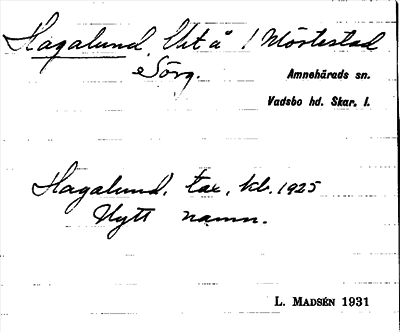 Hagalund, Ut å 1 Mörtestad
Sörg.
Amnehärads sn.
Vadsbo hd. Skar. l.
Hagalund, tax. kb. 1925
Nytt namn.
L. MADSÉN 1931